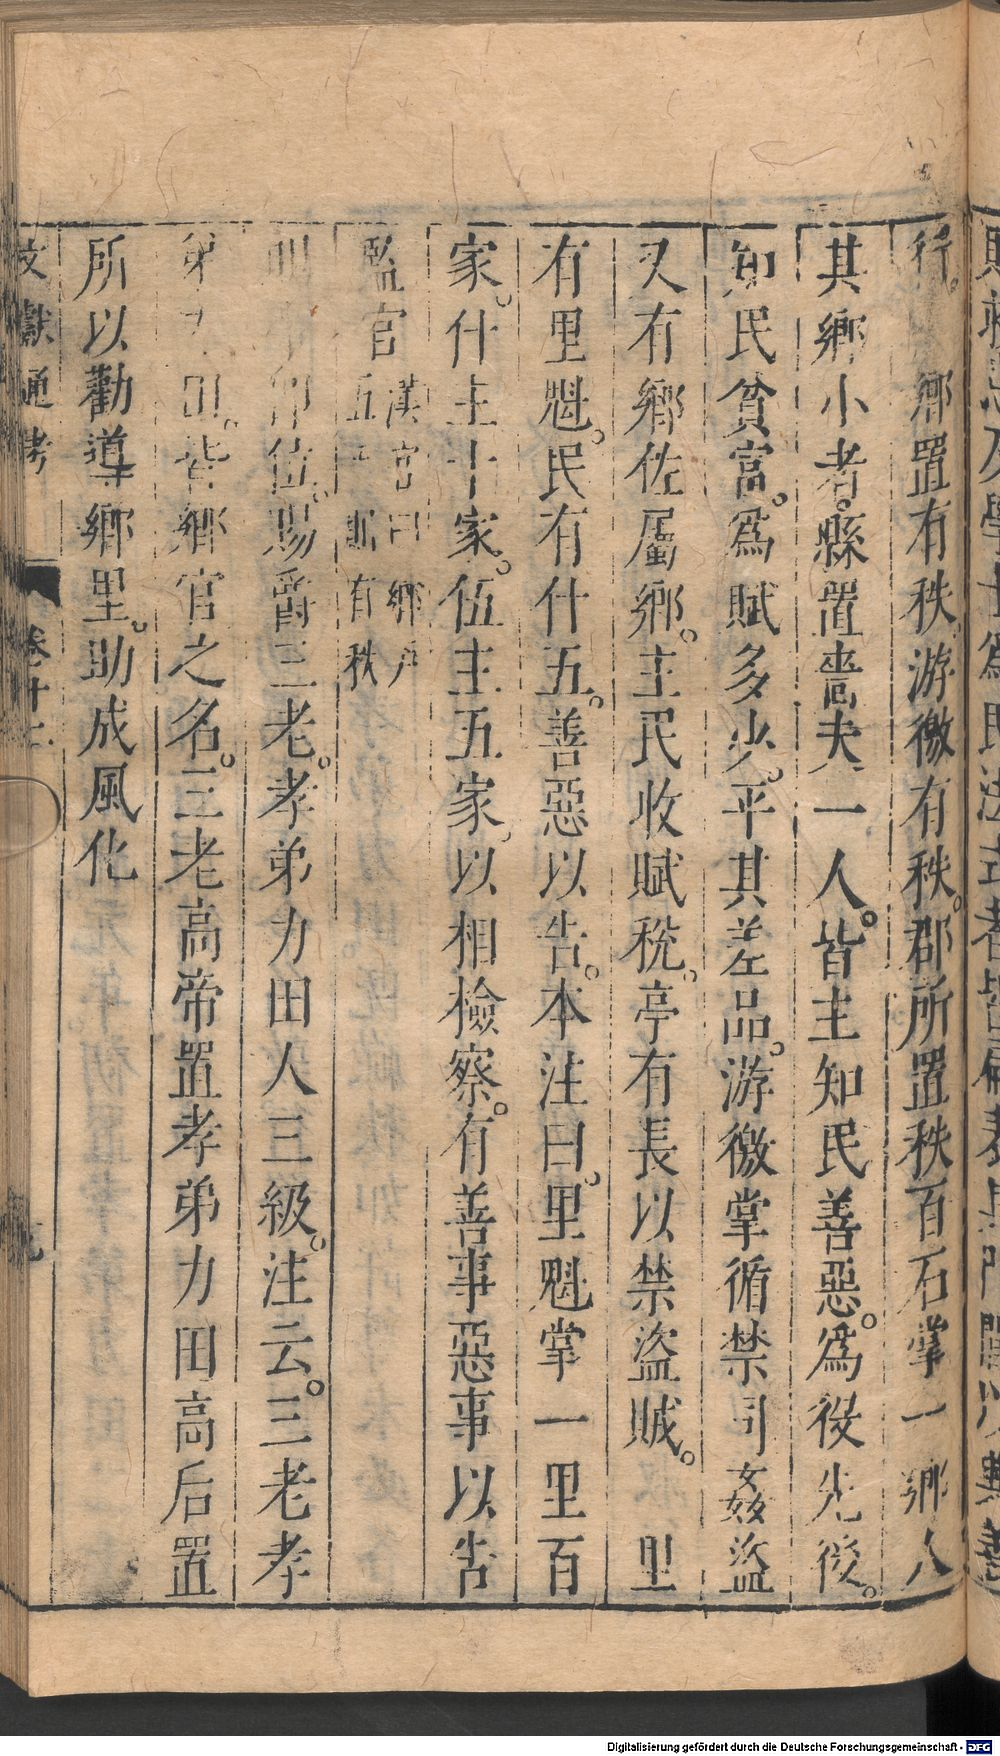 行。　鄉置有秩。游徼有秩。郡所置秩百石掌一鄉人
其鄉小者。縣置嗇夫一人。皆主知民善惡。爲役先後。
知民貧富。爲賦多少。平其差品。游徼掌循禁司姦盜
又有鄉佐屬鄉。主民收賦稅。亭有長以禁盜賊。　里
有里魁。民有什五。善惡以告。本注曰。里魁掌一里百
家。什主十家。伍主五家。以相檢察。有善事惡事以告
監官
漢官曰鄉戶
五千 有秩
位。賜爵三老。孝弟力田人三級。注云。三老孝
弟力田。皆鄉官之名。三老高帝置孝弟力田高后置
所以勸導鄉里。助成風化
文獻通考　卷十
Digitalisierung gefördert durch die Deutsche Forschungsgemeinschaft - DFG